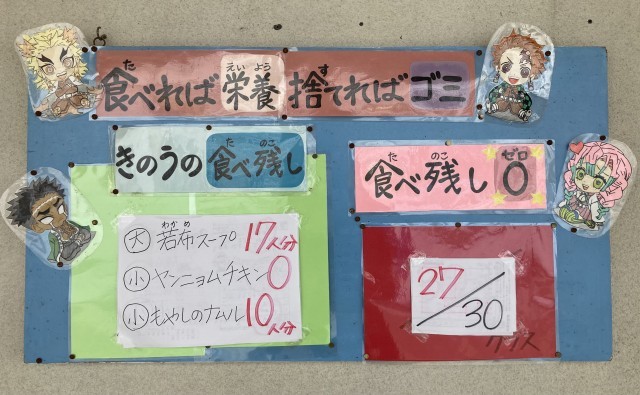 食べれば栄養 捨てればゴミ
きのうの食べ残し
大 若布スープ 17人分
小 ヤンニョムチキン 0
小 もやしのナムル 10人分
食べ残し0
27/30
クラス